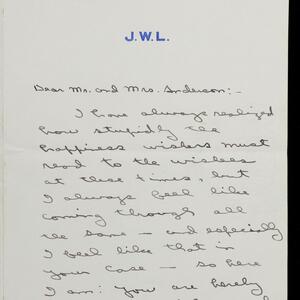 J.W.L.
Dear Mr. and Mrs. Anderson:-
I have always realized
how stupidly the
happiness wishers must
read to the wishees
at these times, but
I always feel like
coming through all
the same - and especially
I feel like that in
your case - so here
I am: you are hereby